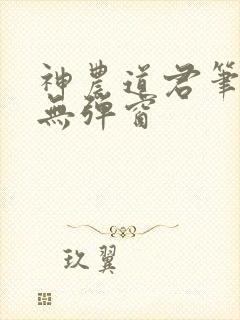 神農道君筆
無彈窗
玖翼